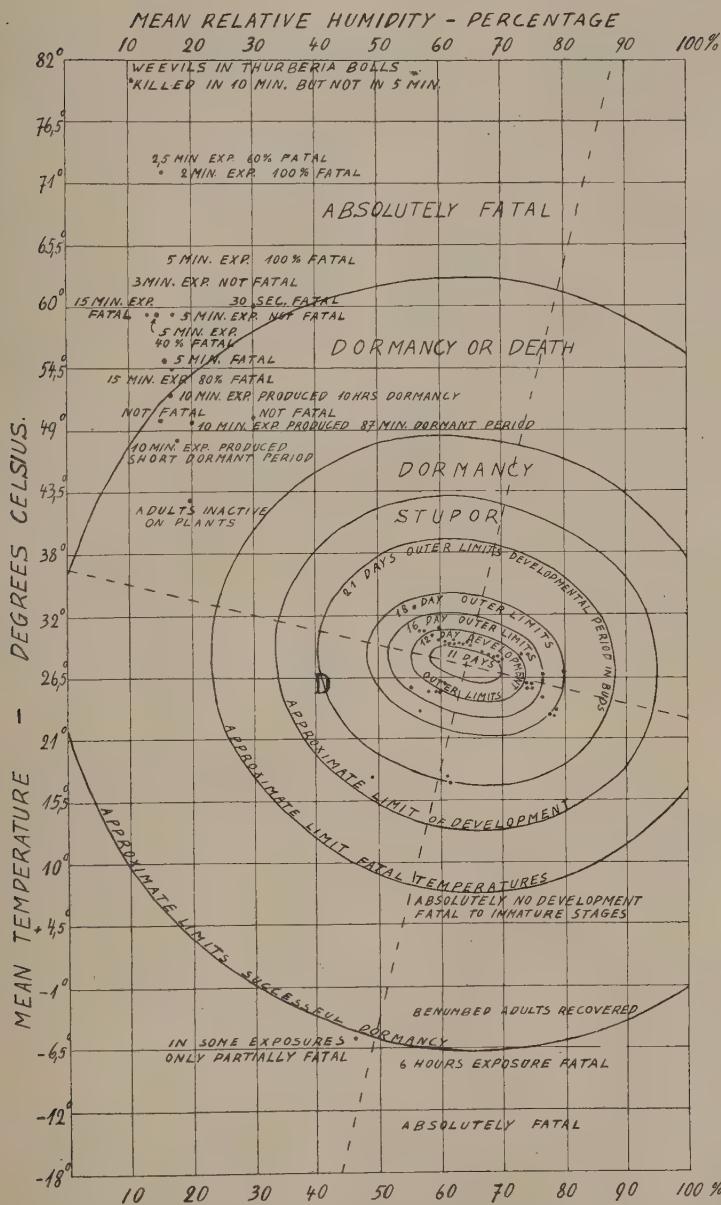 MEAN RELATIVE HUMIDITY - PERCENTAGE
10 20 30 40 50 60 70 80 90 100%
MEAN TEMPERATURE — DEGREES CELSIUS.
82°
76,5°
71°
65,5°
60°
54,5°
49°
43,5°
38°
32°
26,5°
21°
15,5°
10°
+4,5°
-1°
-6,5°
-12°
-18°
WEEVILS IN THURBERIA BOLLS
KILLED IN 10 MIN. BUT NOT IN 5 MIN.
2,5 MIN EXP. 60% FATAL
2 MIN. EXP. 100% FATAL
ABSOLUTELY FATAL
5 MIN. EXP. 100% FATAL
3 MIN. EXP. NOT FATAL
15 MIN. EXP
FATAL
30 SEC. FATAL
5 MIN. EXP. NOT FATAL
5 MIN. EXP.
40% FATAL
5 MIN. FATAL
DORMANCY OR DEATH
15 MIN. EXP 80% FATAL
10 MIN. EXP PRODUCED 10HRS DORMANCY
NOT FATAL
NOT FATAL
10 MIN. EXP PRODUCED 87 MIN. DORMANT PERIOD
10 MIN. EXP. PRODUCED
SHORT DORMANT PERIOD
DORMANCY
ADULTS INACTIVE
ON PLANTS
STUPOR
21 DAYS OUTER LIMITS DEVELOPMENTAL PERIOD IN BUDS
18 DAY OUTER LIMITS
16 DAY OUTER LIMITS
12 DAY DEVELOPMENT
11 DAYS
OUTER LIMITS
D
APPROXIMATE LIMIT OF DEVELOPMENT
APPROXIMATE LIMIT FATAL TEMPERATURES
ABSOLUTELY NO DEVELOPMENT
FATAL TO IMMATURE STAGES
APPROXIMATE LIMITS SUCCESSFUL DORMANCY
BENUMBED ADULTS RECOVERED
IN SOME EXPOSURES
ONLY PARTIALLY FATAL
6 HOURS EXPOSURE FATAL
ABSOLUTELY FATAL
10 20 30 40 50 60 70 80 90 100%